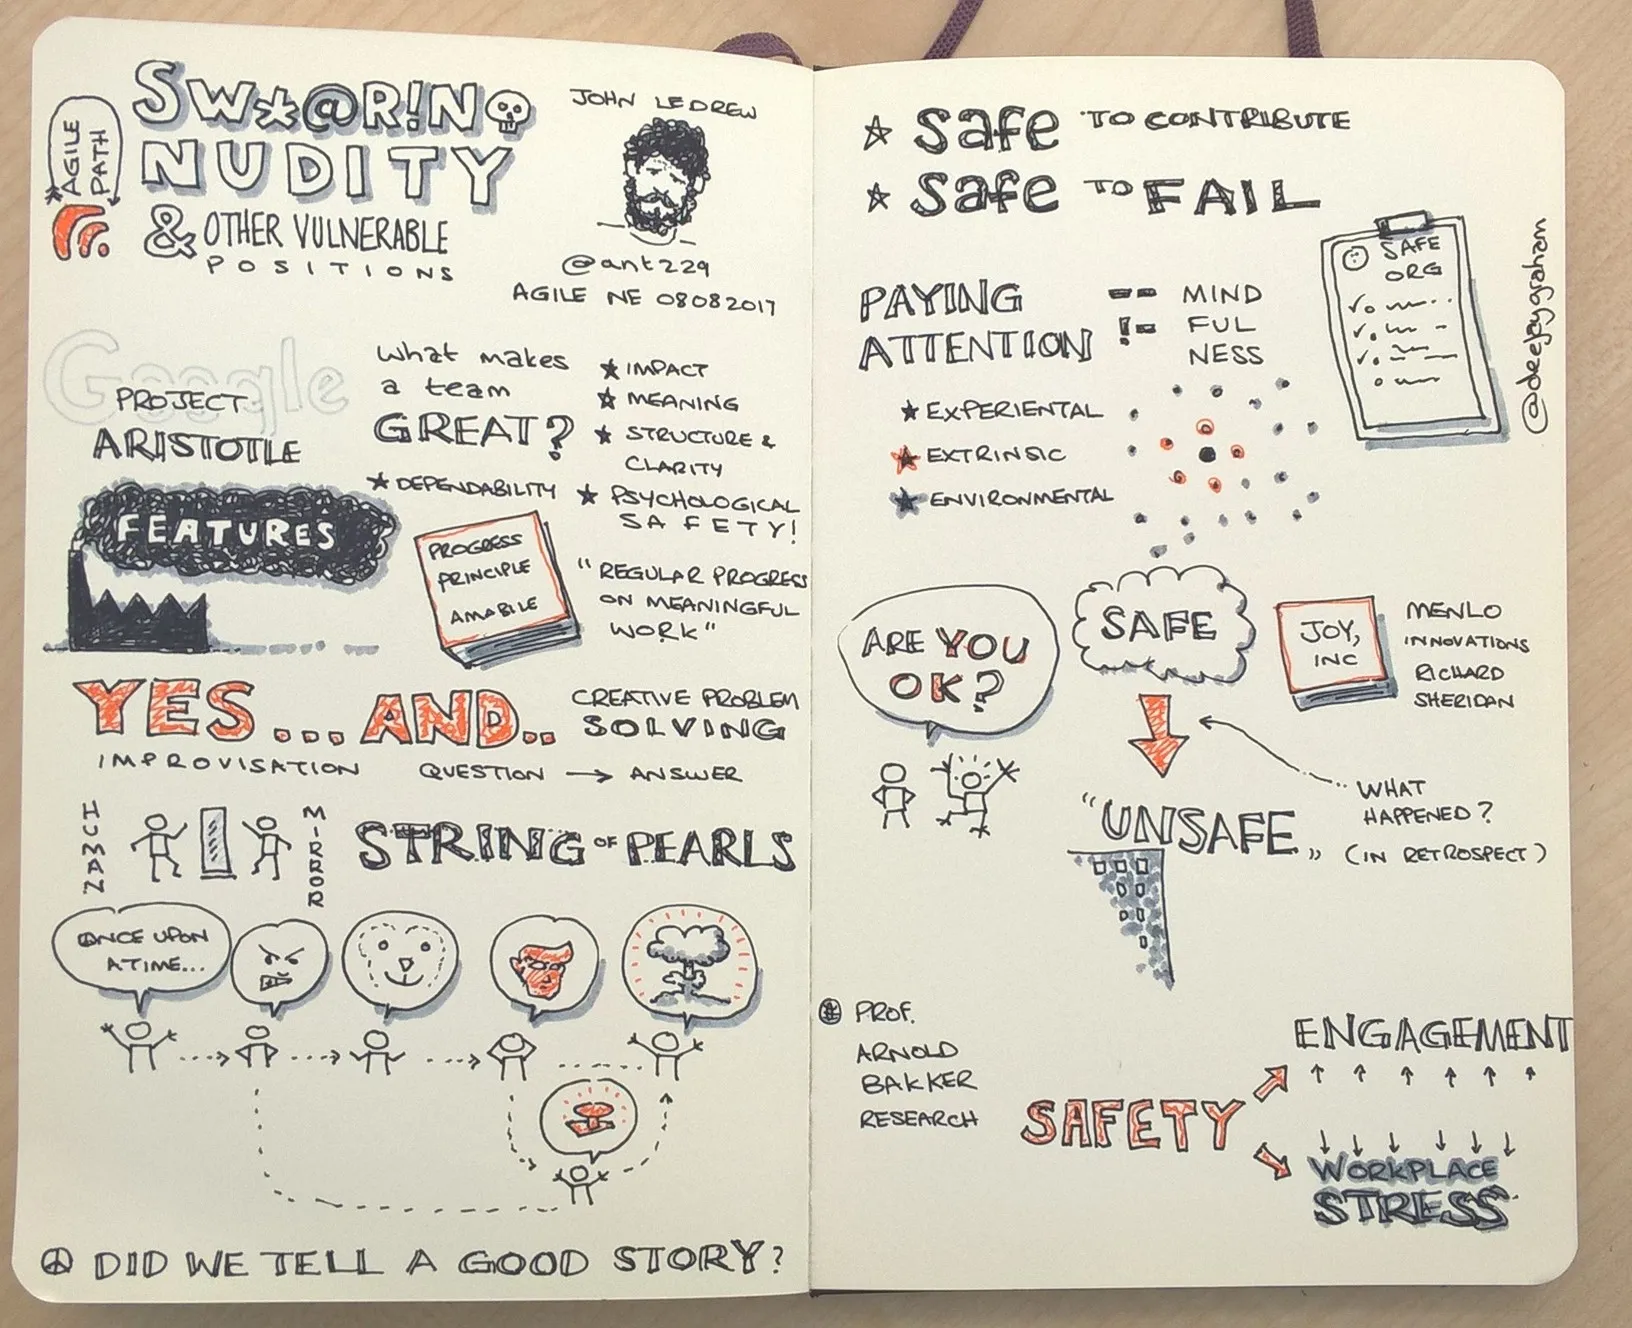 AGILE
PATH
SW*@R!NG
NUDITY
& OTHER VULNERABLE
POSITIONS
JOHN LEDREW
@ant229
AGILE NE 08082017
Google
PROJECT
ARISTOTLE
what makes
a team
GREAT?
★ DEPENDABILITY
★ IMPACT
★ MEANING
★ STRUCTURE &
CLARITY
★ PSYCHOLOGICAL
SAFETY!
FEATURES
PROGRESS
PRINCIPLE
AMABILE
"REGULAR PROGRESS
ON MEANINGFUL
WORK"
YES... AND..
IMPROVISATION
CREATIVE PROBLEM
SOLVING
QUESTION → ANSWER
HUMAN
MIRROR
STRING OF PEARLS
ONCE UPON
A TIME...
DID WE TELL A GOOD STORY?
☆ safe TO CONTRIBUTE
★ safe TO FAIL
SAFE
ORG
@deejaygraham
PAYING
ATTENTION
MIND
FUL
NESS
★ EXPERIENTIAL
★ EXTRINSIC
★ ENVIRONMENTAL
ARE YOU
OK?
SAFE
JOY,
INC
MENLO
INNOVATIONS
RICHARD
SHERIDAN
"UNSAFE"
WHAT
HAPPENED?
(IN RETROSPECT)
PROF.
ARNOLD
BAKKER
RESEARCH
SAFETY
ENGAGEMENT
WORKPLACE
STRESS